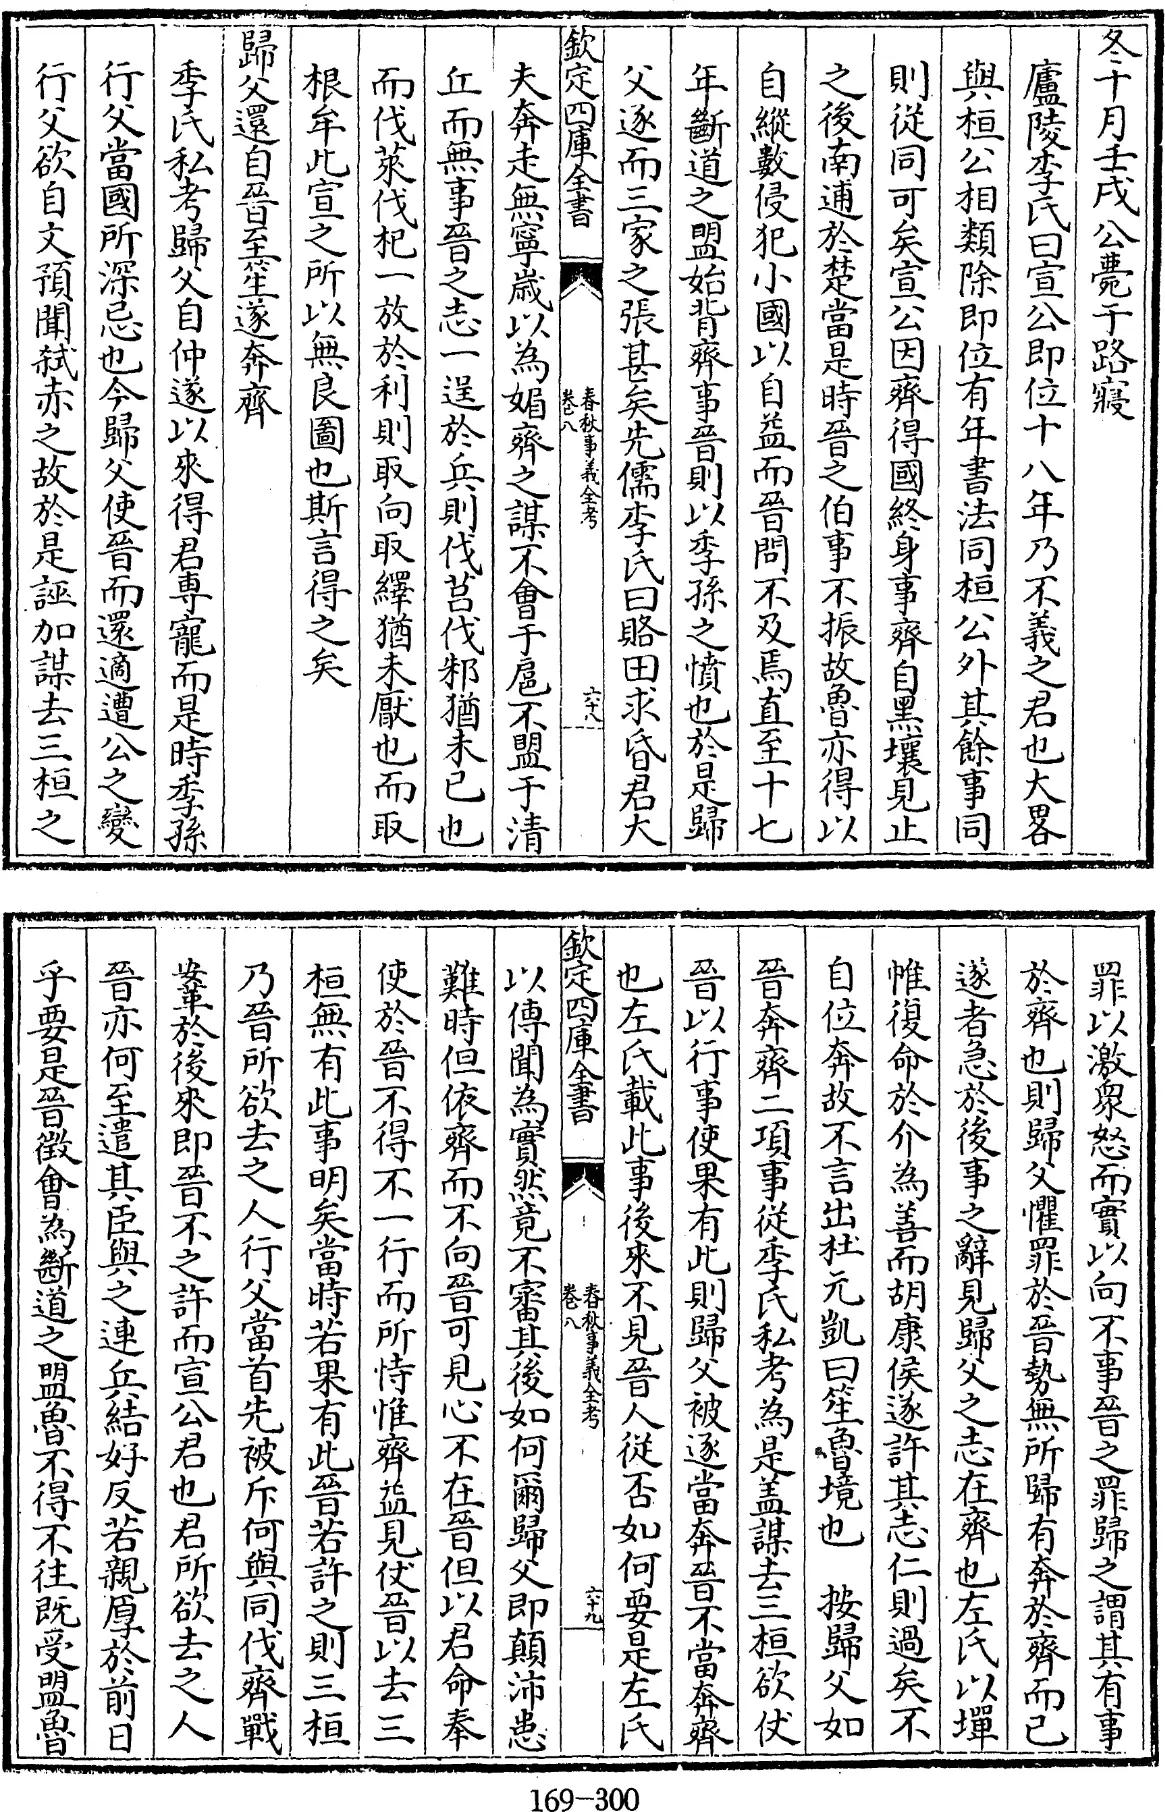 冬十月壬戌公薨于路寢
廬陵李氏曰宣公即位十八年乃不義之君也大畧
與桓公相類除即位有年書法同桓公外其餘事同
則從同可矣宣公因齊得國終身事齊自黑壤見止
之後南逋於楚當是時晉之伯事不振故魯亦得以
自縱數侵犯小國以自益而晉問不及焉直至十七
年斷道之盟始背齊事晉則以季孫之憤也於是歸
父逐而三家之張甚矣先儒李氏曰賂田求昏君大
欽定四庫全書
春秋事義全考
卷八
六十八
夫奔走無寧歲以為媚齊之謀不會于扈不盟于清
丘而無事晉之志一逞於兵則伐莒伐邾猶未已也
而伐萊伐杞一放於利則取向取繹猶未厭也而取
根牟此宣之所以無良圖也斯言得之矣
歸父還自晉至笙遂奔齊
季氏私考歸父自仲遂以來得君專寵而是時季孫
行父當國所深忌也今歸父使晉而還適遭公之變
行父欲自文預聞弑赤之故於是誣加謀去三桓之
罪以激衆怒而實以向不事晉之罪歸之謂其有事
於齊也則歸父懼罪於晉勢無所歸有奔於齊而已
遂者急於後事之辭見歸父之志在齊也左氏以墠
帷復命於介為善而胡康侯遂許其志仁則過矣不
自位奔故不言出杜元凱曰笙魯境也　按歸父如
晉奔齊二項事從季氏私考為是蓋謀去三桓欲仗
晉以行事使果有此則歸父被逐當奔晉不當奔齊
也左氏載此事後來不見晉人從否如何要是左氏
欽定四庫全書
春秋事義全考
卷八
六十九
以傳聞為實然竟不審其後如何爾歸父即顛沛患
難時但依齊而不向晉可見心不在晉但以君命奉
使於晉不得不一行而所恃惟齊益見仗晉以去三
桓無有此事明矣當時若果有此晉若許之則三桓
乃晉所欲去之人行父當首先被斥何與同伐齊戰
鞌於後來即晉不之許而宣公君也君所欲去之人
晉亦何至遣其臣與之連兵結好反若親厚於前日
乎要是晉徵會為斷道之盟魯不得不往既受盟魯
169-300